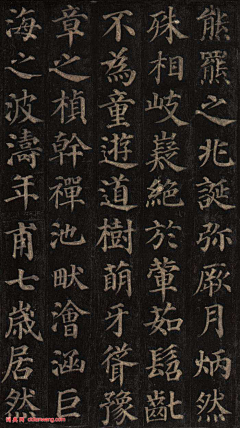 熊羆之兆誕弥厥月炳然
殊相岐嶷絶於葷茹髫齓
不為童遊道樹萌牙聳豫
章之楨幹禪池畎澮涵巨
海之波濤年甫七歲居然